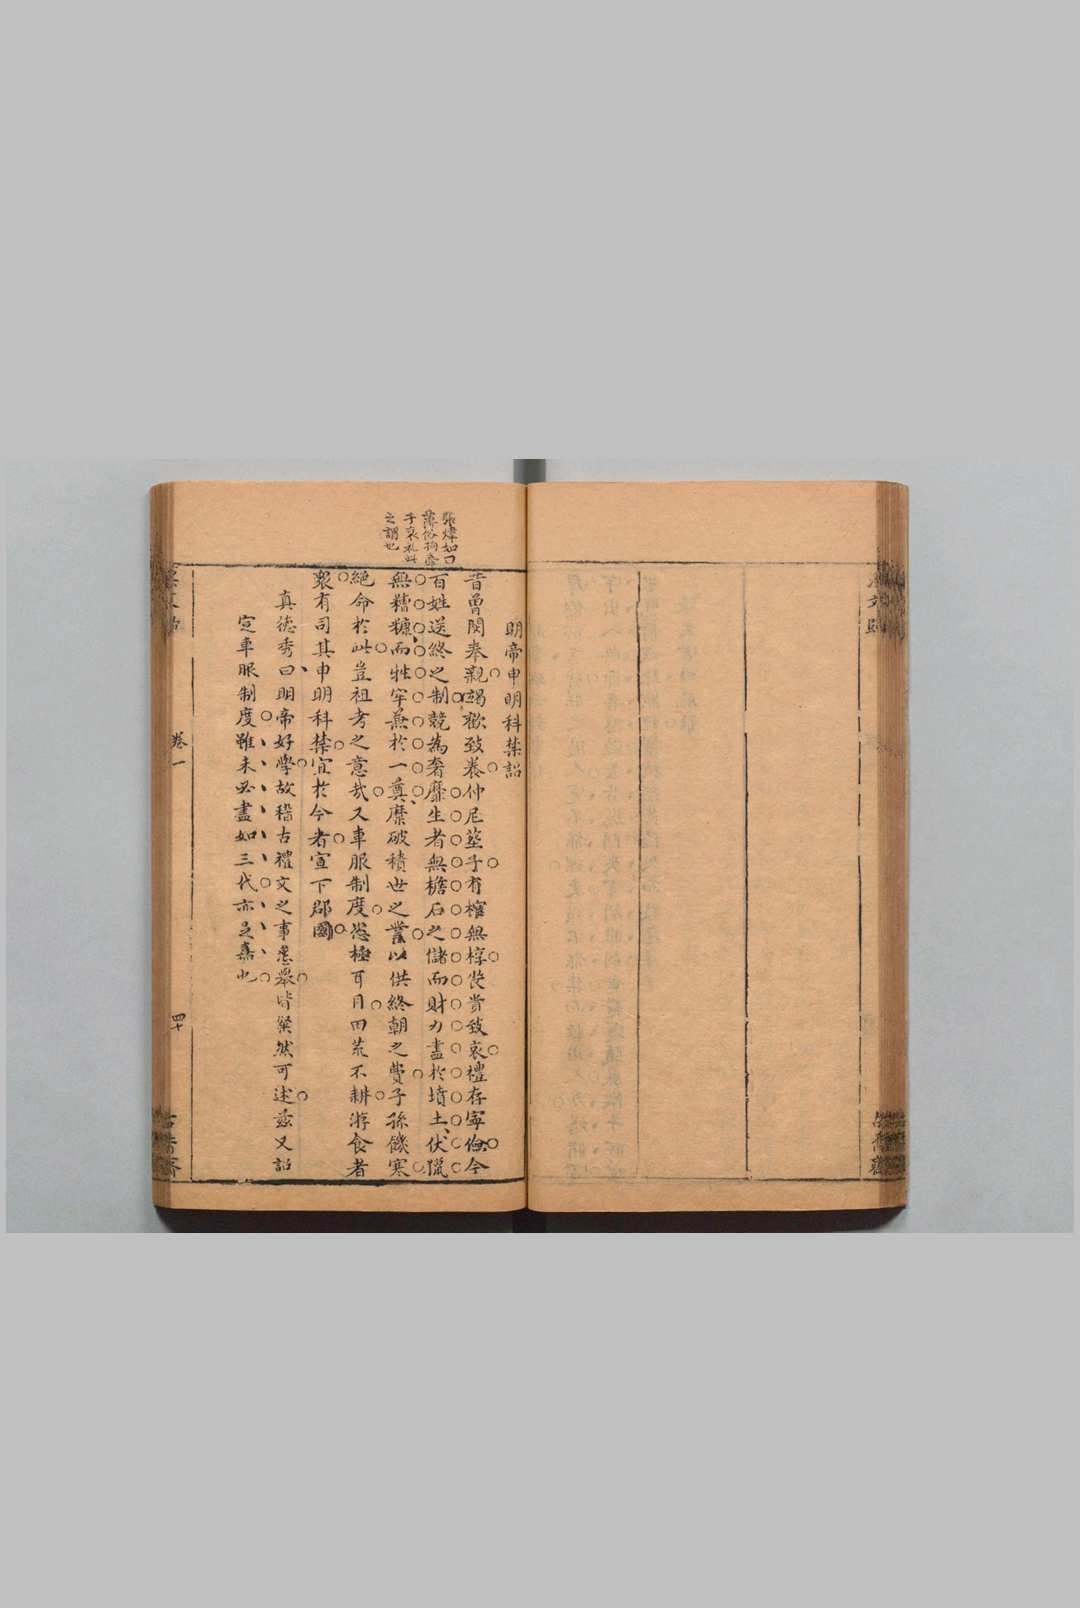 明帝申明科禁詔
昔曾閔奉親竭歡致養仲尼塟子有棺無椁喪貴致哀禮存寧儉今
百姓送終之制競為奢靡生者無檐石之儲而財力盡於墳土伏臘
無糟糠而牲牢兼於一奠糜破積世之業以供終朝之費子孫饑寒
絕命於此豈祖考之意哉又車服制度恣極耳目田荒不耕游食者
衆有司其申明科禁宜於今者宣下郡國
真德秀曰明帝好學故稽古禮文之事悉舉皆粲然可述茲又詔
定車服制度雖未必盡如三代亦足嘉也
張煒如曰
薄俗狥
子哀
之謂也
卷一
四十